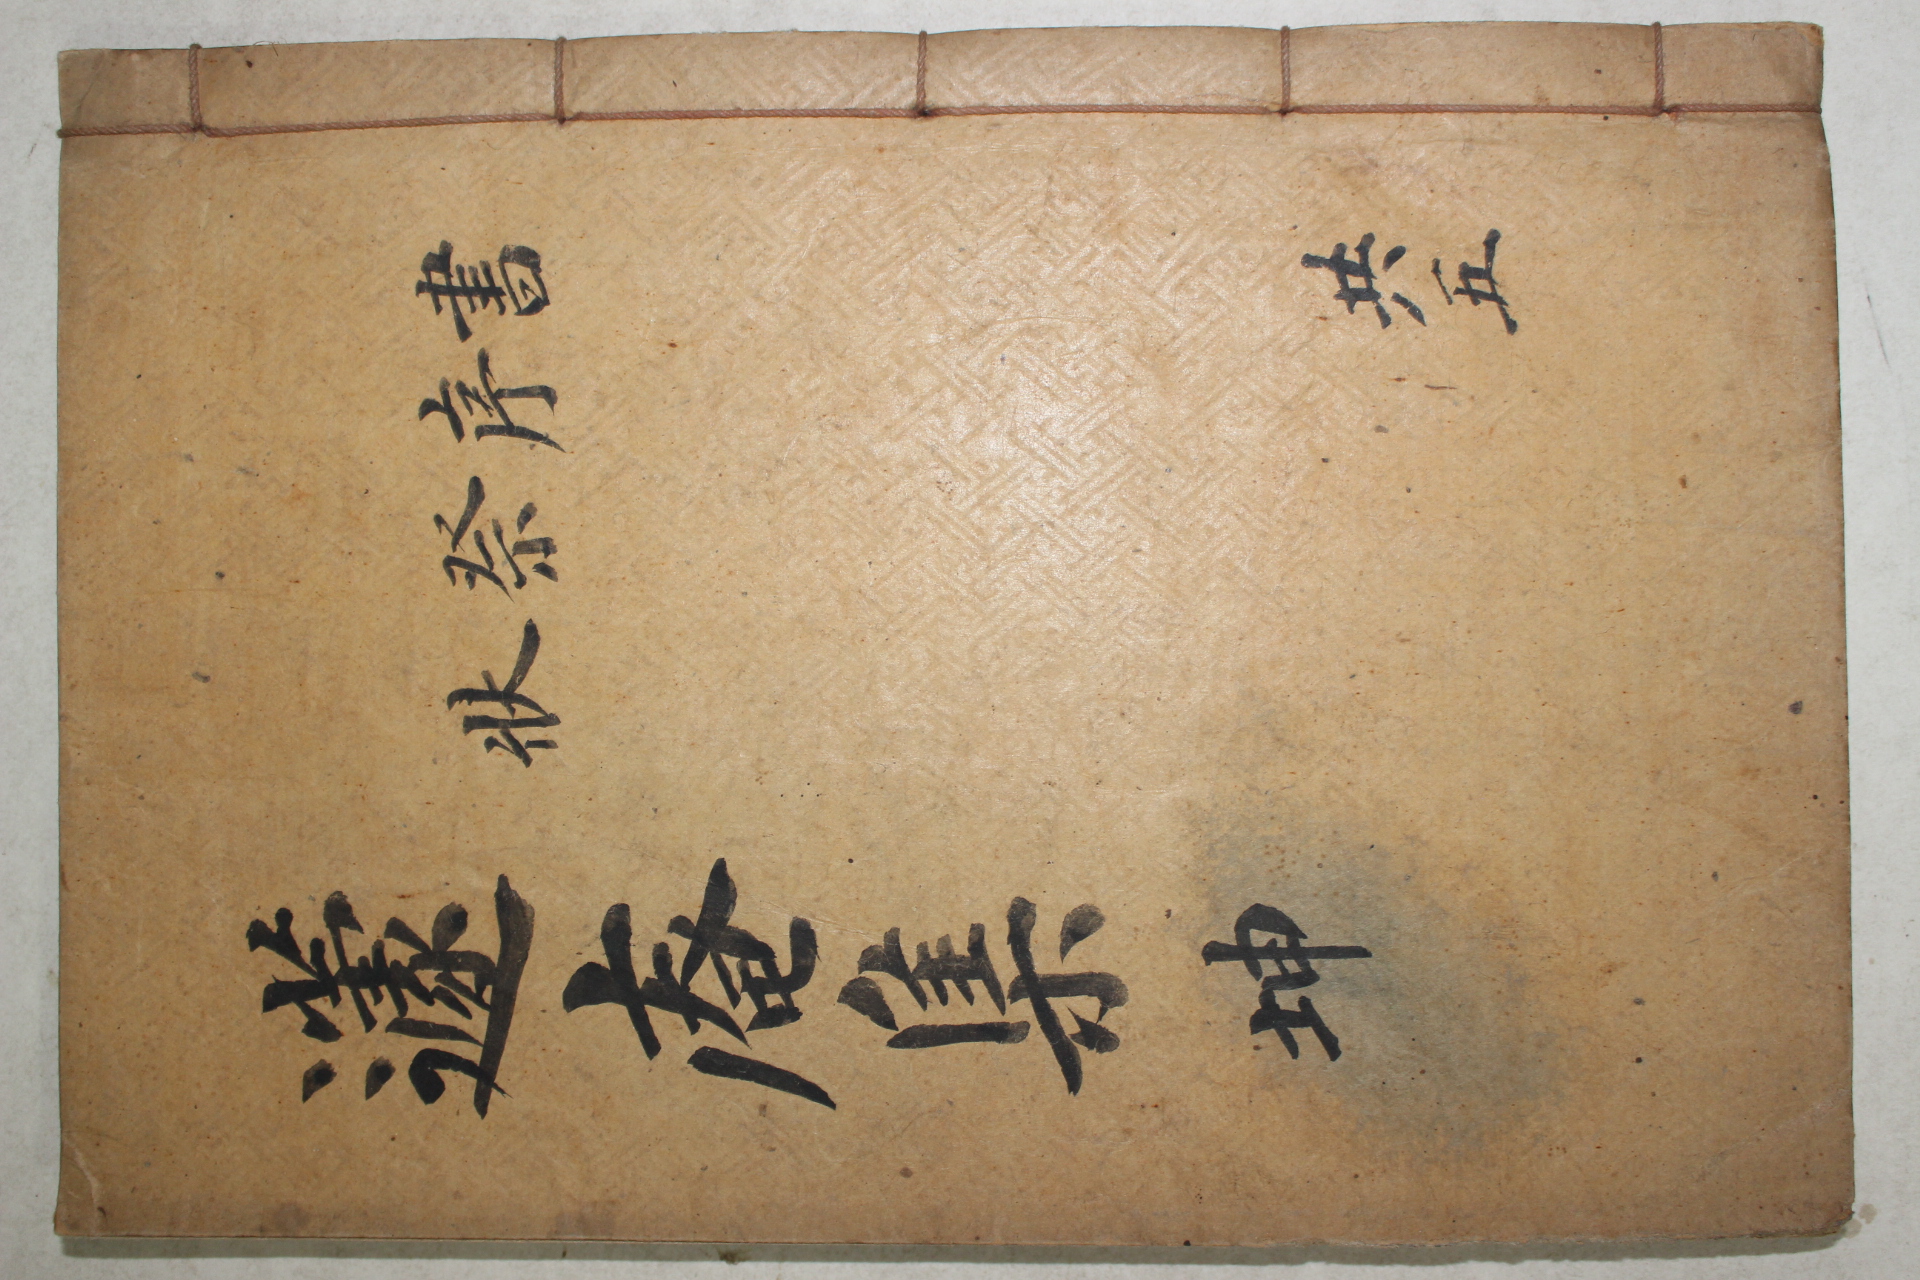 書 序 祭 狀
共五
蘧庵集 坤